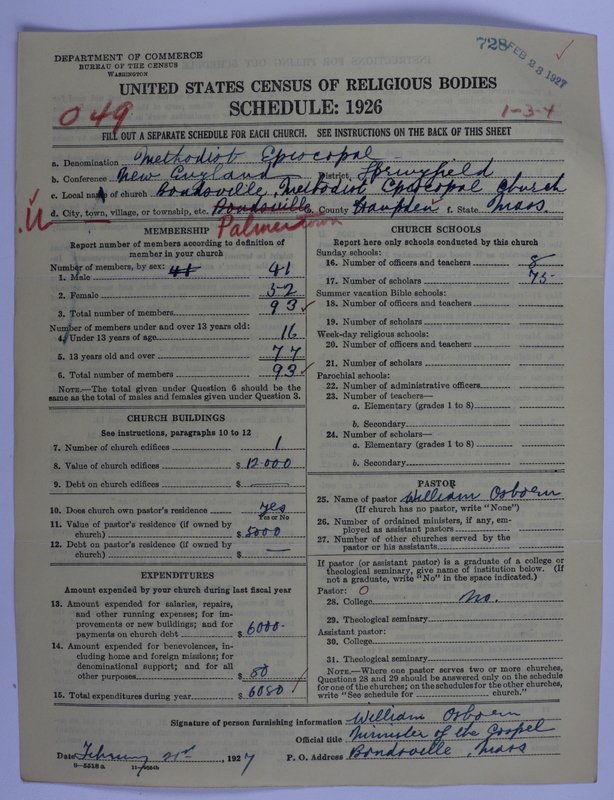 DEPARTMENT OF COMMERCE
BUREAU OF THE CENSUS
WASHINGTON
728 FEB 23 1927
UNITED STATES CENSUS OF RELIGIOUS BODIES
SCHEDULE: 1926
049
1-3-4
FILL OUT A SEPARATE SCHEDULE FOR EACH CHURCH. SEE INSTRUCTIONS ON THE BACK OF THIS SHEET
a. Denomination Methodist Episcopal
b. Conference New England District, Springfield
c. Local name of church Bondsville, Methodist Episcopal Church
d. City, town, village, or township, etc. Bondsville County Hampden f. State Mass.
Palmer town
MEMBERSHIP
Report number of members according to definition of
member in your church
Number of members, by sex: 41
1. Male 41
2. Female 52
3. Total number of members 93
Number of members under and over 13 years old:
4. Under 13 years of age 16
5. 13 years old and over 77
6. Total number of members 93
NOTE.—The total given under Question 6 should be
same as the total of males and females given under Question 3.
CHURCH BUILDINGS
See instructions, paragraphs 10 to 12
7. Number of church edifices 1
8. Value of church edifices $ 12.000
9. Debt on church edifices $ —
10. Does church own pastor's residence yes
Yes or No
11. Value of pastor's residence (if owned by
church) $ 5000
12. Debt on pastor's residence (if owned by
church) $ —
EXPENDITURES
Amount expended by your church during last fiscal year
13. Amount expended for salaries, repairs,
and other running expenses; for im-
provements or new buildings; and for
payments on church debt $ 6000-
14. Amount expended for benevolences, in-
cluding home and foreign missions; for
denominational support; and for all
other purposes $ 80
15. Total expenditures during year $ 6080
CHURCH SCHOOLS
Report here only schools conducted by this church
Sunday schools:
16. Number of officers and teachers 8
17. Number of scholars 75-
Summer vacation Bible schools:
18. Number of officers and teachers
19. Number of scholars
Week-day religious schools:
20. Number of officers and teachers
21. Number of scholars
Parochial schools:
22. Number of administrative officers
23. Number of teachers—
a. Elementary (grades 1 to 8)
b. Secondary
24. Number of scholars—
a. Elementary (grades 1 to 8)
b. Secondary
PASTOR
25. Name of pastor William Osborn
(If church has no pastor, write "None")
26. Number of ordained ministers, if any, em-
ployed as assistant pastors
27. Number of other churches served by the
pastor or his assistants
If pastor (or assistant pastor) is a graduate of a college or
theological seminary, give name of institution below. (If
not a graduate, write "No" in the space indicated.)
Pastor: O
28. College no.
29. Theological seminary
Assistant pastor:
30. College
31. Theological seminary
NOTE.—Where one pastor serves two or more churches,
Questions 28 and 29 should be answered only on the schedule
for one of the churches; on the schedules for the other churches,
write "See schedule for church."
Signature of person furnishing information William Osborn
Official title Minister of the Gospel
Date February 21st, 1927 P. O. Address Bondsville, Mass
8—5518 a